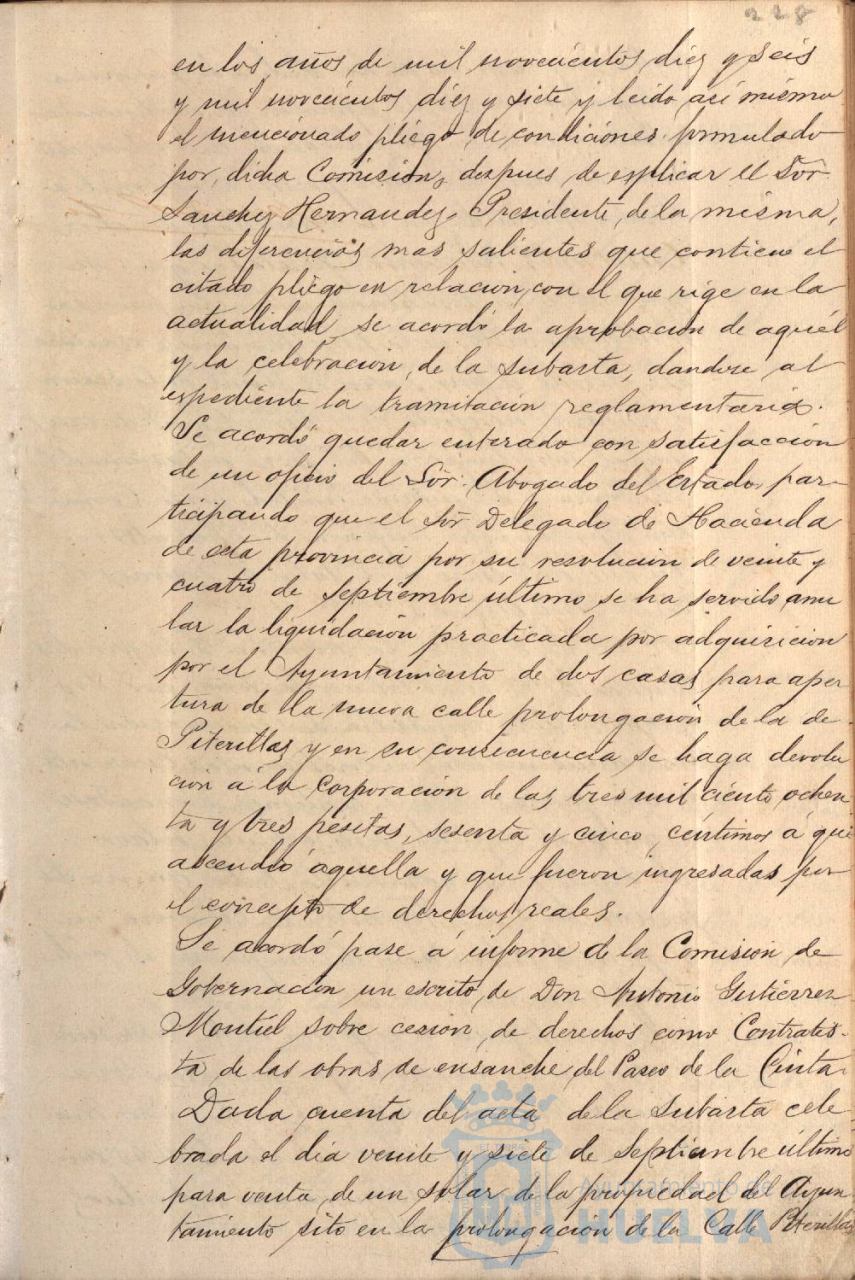 228
en los años de mil novecientos diez y seis
y mil novecientos diez y siete y leido asi mismo
el mencionado pliego de condiciones formulado
por dicha Comision, despues de esplicar el Sor.
Sanchez Hernandez, Presidente de la misma,
las diferencias mas salientes que contiene el
citado pliego en relacion con el que rige en la
actualidad, se acordó la aprobacion de aquél
y la celebracion de la subasta, dandose al
espediente la tramitacion reglamentaria.
Se acordó quedar enterado con satisfaccion
de un oficio del Sor. Abogado del Estado, par-
ticipando que el Sor Delegado de Hacienda
de esta provincia por su resolucion de veinte y
cuatro de septiembre último se ha servido anu
lar la liquidación practicada por adquisicion
por el Ayuntamiento de dos casas para aper
tura de la nueva calle prolongación de la de
Piterillas y en su consecuencia se haga devolu
cion á la Corporación de las tres mil ciento ochen
ta y tres pesetas, sesenta y cinco céntimos á que
ascendió aquella y que fueron ingresadas por
el concepto de derechos reales.
Se acordó pase á informe de la Comision de
Gobernación un escrito de Don Antonio Gutiérrez
Montiel sobre cesion de derechos como Contratis-
ta de las obras de ensanche del Paseo de la Cinta.
Dada cuenta del acta de la subasta cele-
brada el dia veinte y siete de Septiembre último
para venta de un solar de la propiedad del Ayun
tamiento sito en la prolongación de la Calle Piterillas
Ayuntamiento de
HUELVA